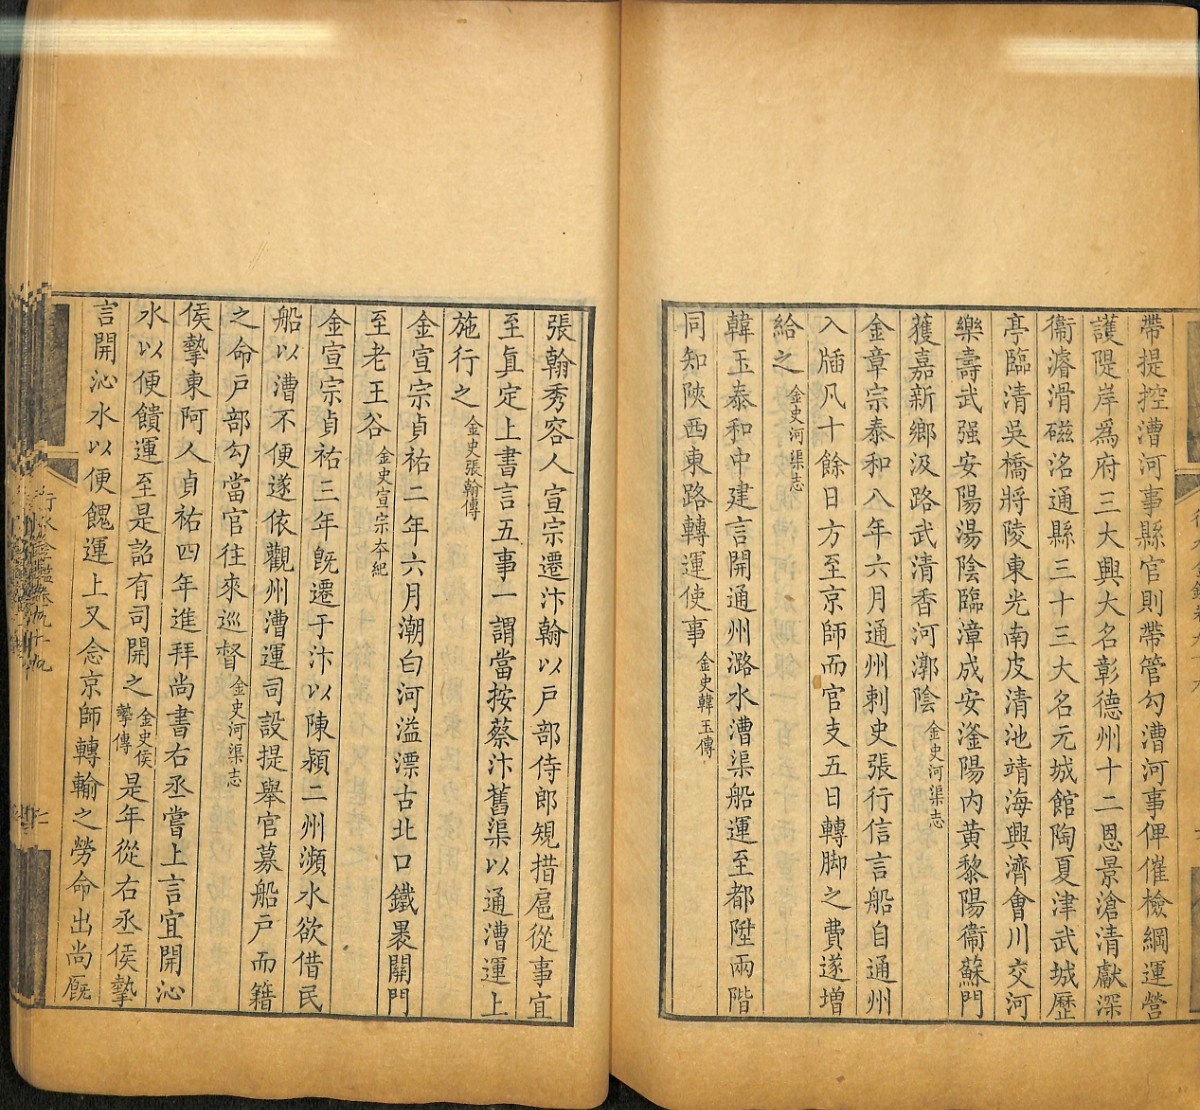 帶提控漕河事縣官則帶管勾漕河事俾催檢綱運營
護隄岸為府三大興大名彰德州十二恩景滄清獻深
衞濬滑磁洺通縣三十三大名元城館陶夏津武城歷
亭臨清吳橋將陵東光南皮清池靖海興濟會川交河
樂壽武强安陽湯陰臨漳成安滏陽内黃黎陽衞蘇門
獲嘉新鄉汲路武清香河漷陰金史河渠志
金章宗泰和八年六月通州刺史張行信言船自通州
入牐凡十餘日方至京師而官支五日轉脚之費遂增
給之金史河渠志
韓玉泰和中建言開通州潞水漕渠船運至都陞兩階
同知陝西東路轉運使事金史韓玉傳
張翰秀容人宣宗遷汴翰以戶部侍郎規措扈從事宜
至眞定上書言五事一謂當按蔡汴舊渠以通漕運上
施行之金史張翰傳
金宣宗貞祐二年六月潮白河溢漂古北口鐵裹關門
至老王谷金史宣宗本紀
金宣宗貞祐三年旣遷于汴以陳潁二州瀕水欲借民
船以漕不便遂依觀州漕運司設提舉官募船戶而籍
之命戶部勾當官往來巡督金史河渠志
侯摯東阿人貞祐四年進拜尚書右丞嘗上言宜開沁
水以便饋運至是詔有司開之金史侯摯傳是年從右丞侯摯
言開沁水以便餽運上又念京師轉輸之勞命出尚厩
行水金鑑卷九十九